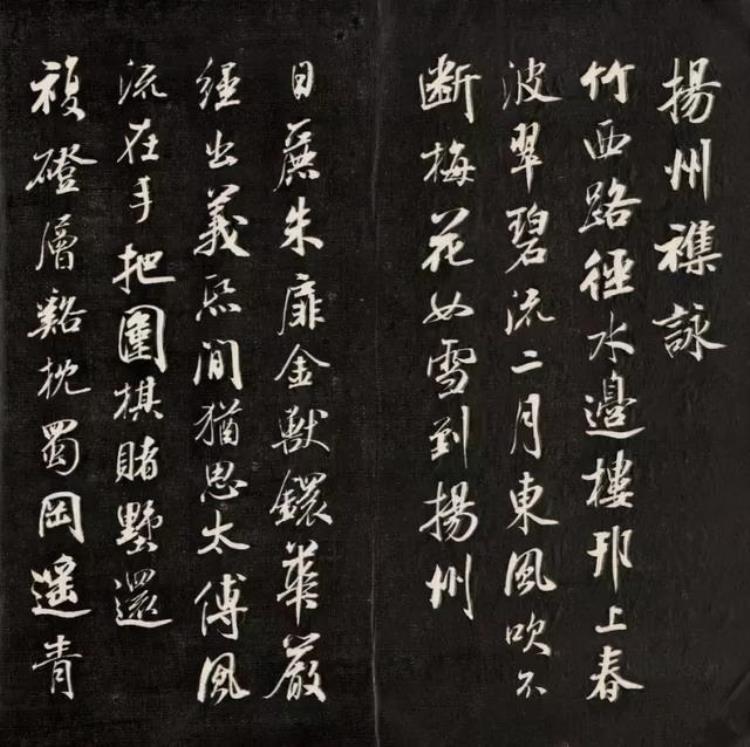 揚州襍詠
竹西路徑水邊樓邗上春
波翠碧流二月東風吹不
断梅花如雪到揚州
日廡朱扉金獸鐶華嚴
經出義熙間猶思太傅風
流在手把圍棋賭墅還
複磴層谿枕蜀岡遥青